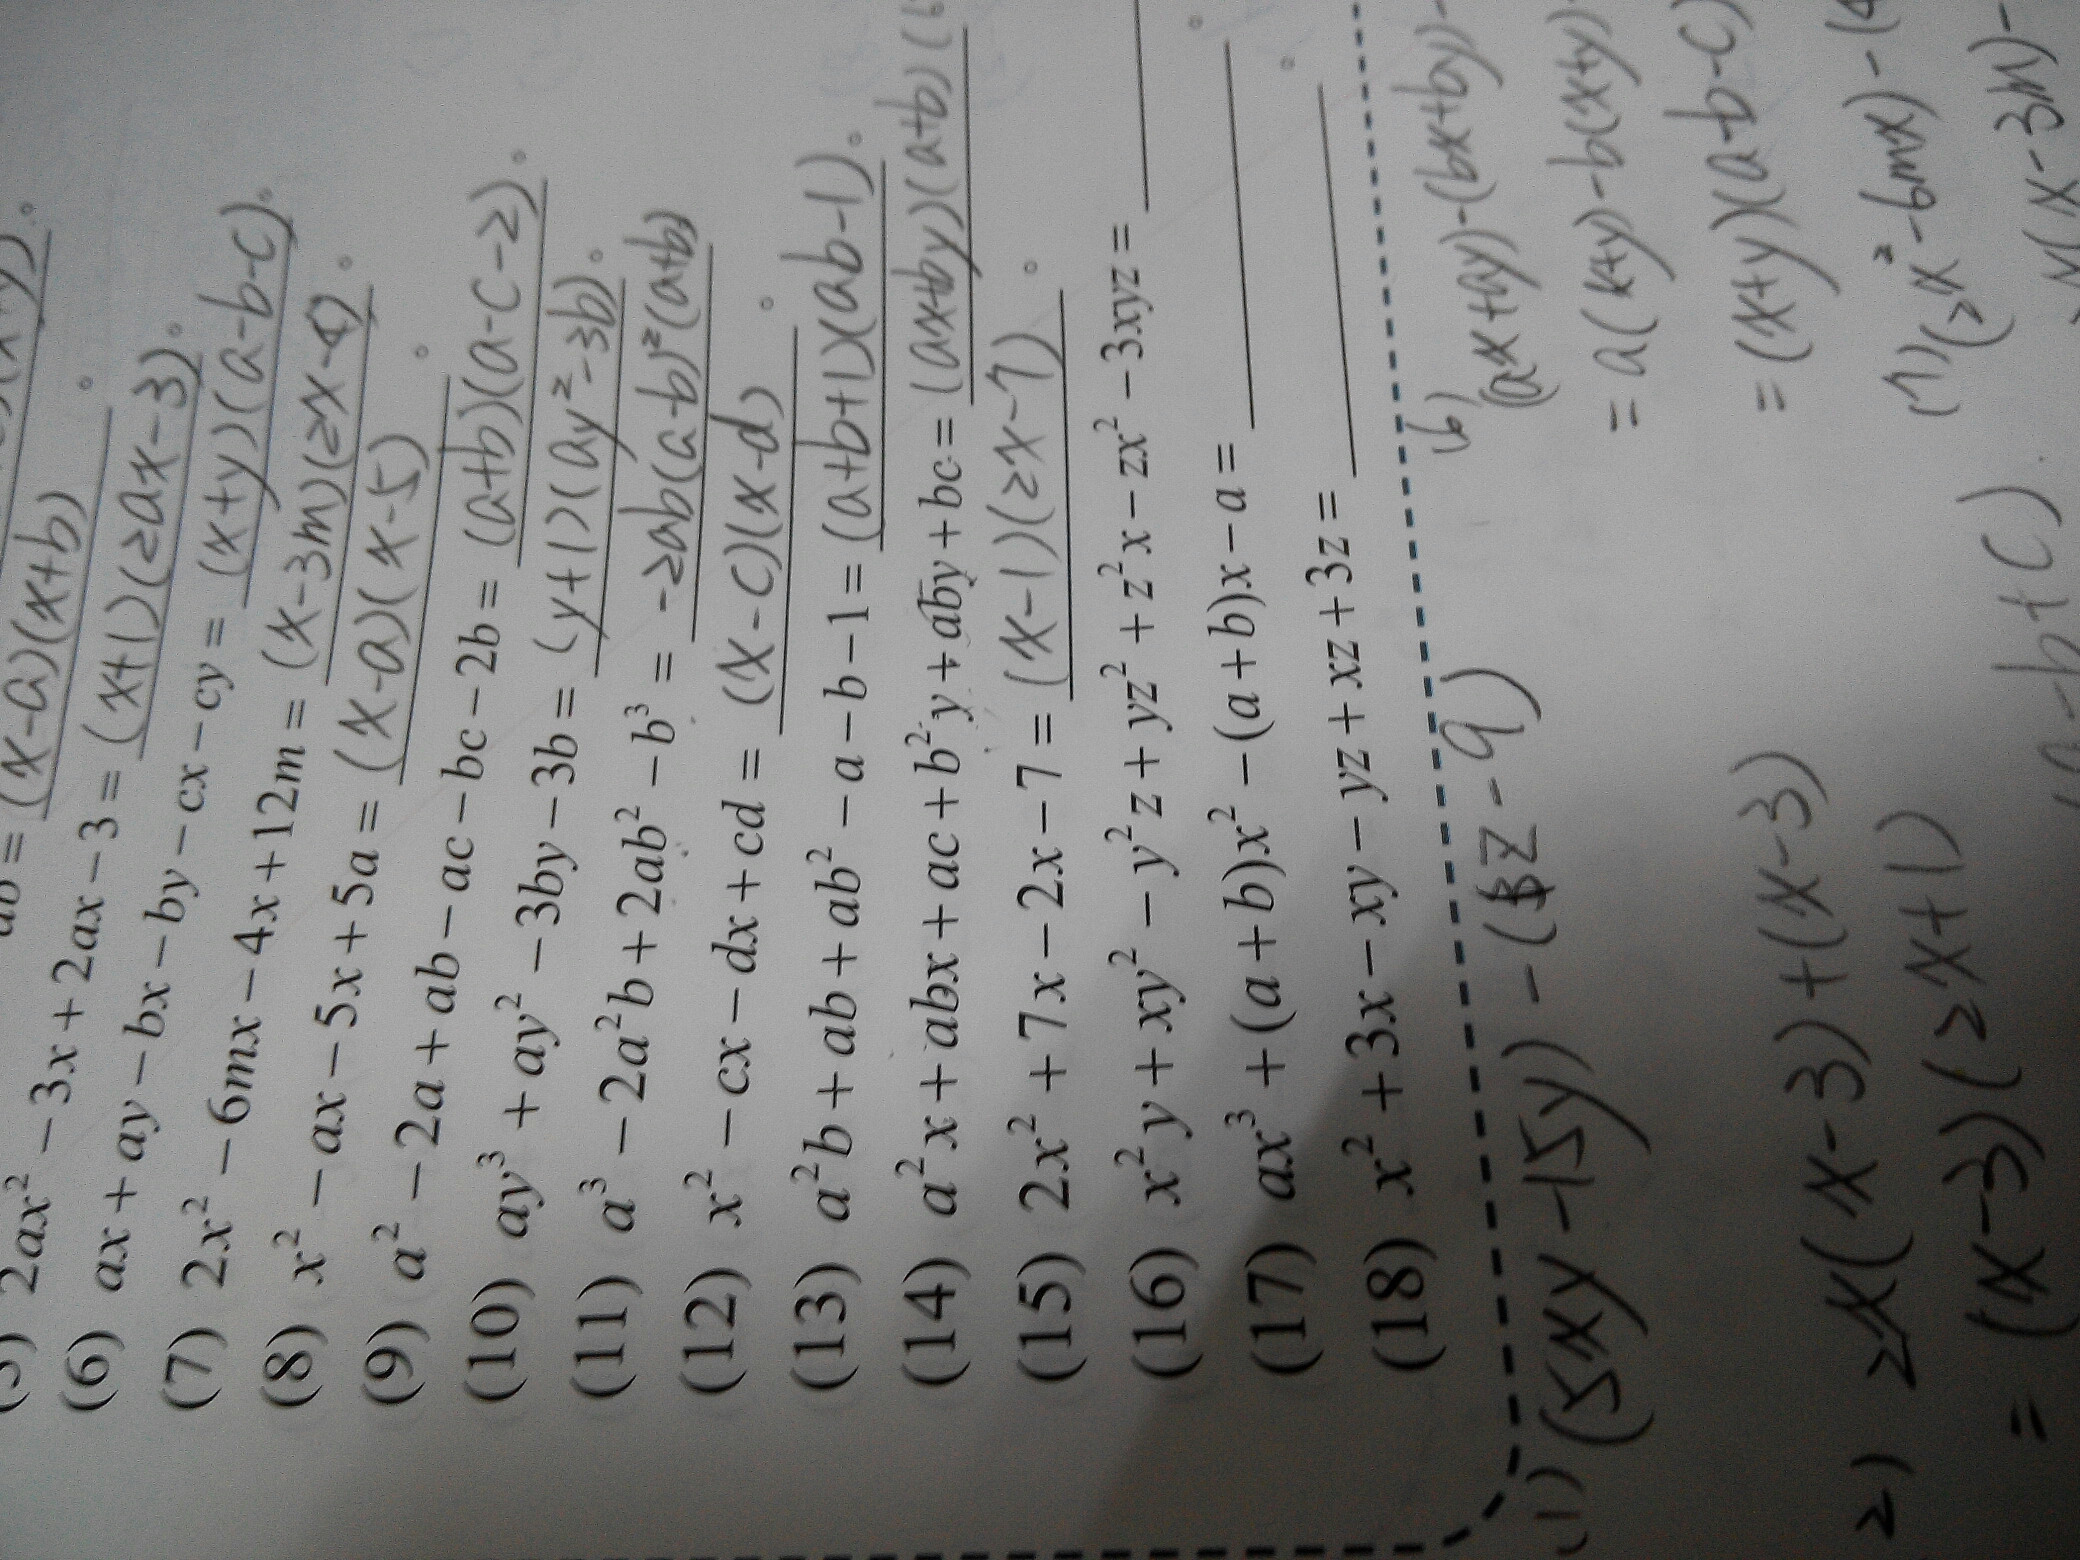 ab = (x-a)(x+b)
2ax² − 3x + 2ax − 3 = (x+1)(2ax-3)。
(6) ax + ay − bx − by − cx − cy = (x+y)(a-b-c)。
(7) 2x² − 6mx − 4x + 12m = (x-3m)(2x-4)。
(8) x² − ax − 5x + 5a = (x-a)(x-5)。
(9) a² − 2a + ab − ac − bc − 2b = (a+b)(a-c-2)。
(10) ay³ + ay² − 3by − 3b = (y+1)(ay²-3b)。
(11) a³ − 2a²b + 2ab² − b³ = -2ab(a-b)²(a+b)
(12) x² − cx − dx + cd = (x-c)(x-d)。
(13) a²b + ab + ab² − a − b − 1 = (a+b+1)(ab-1)。
(14) a²x + abx + ac + b²y + aby + bc = (ax+by)(a+b)
(15) 2x² + 7x − 2x − 7 = (x-1)(2x-7)。
(16) x²y + xy² − y²z + yz² + z²x − zx² − 3xyz = 。
(17) ax³ + (a + b)x² − (a + b)x − a = 。
(18) x² + 3x − xy − yz + xz + 3z = 。
(1) (5xy-15y)-(3z-9)
2) 2x(x-3)+(x-3)
= (x-3)(2x+1)
6)
(ax+ay)-(bx+by)-
= a(x+y)-b(x+y)
= (x+y)(a-b-c)
(7) (2x²-6mx)-(4
(x-3m)-